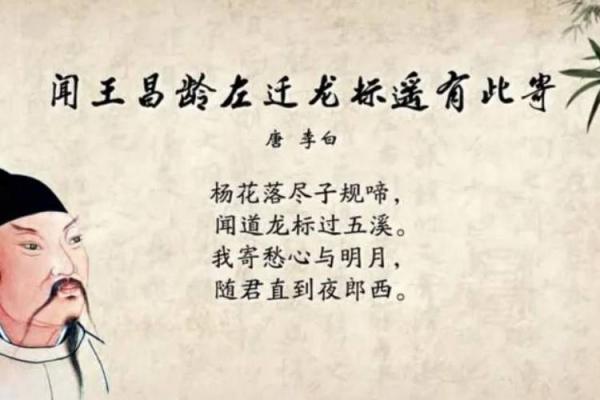 闻王昌龄左迁龙标遥有此寄
唐 李白
杨花落尽子规啼，
闻道龙标过五溪。
我寄愁心与明月，
随君直到夜郎西。